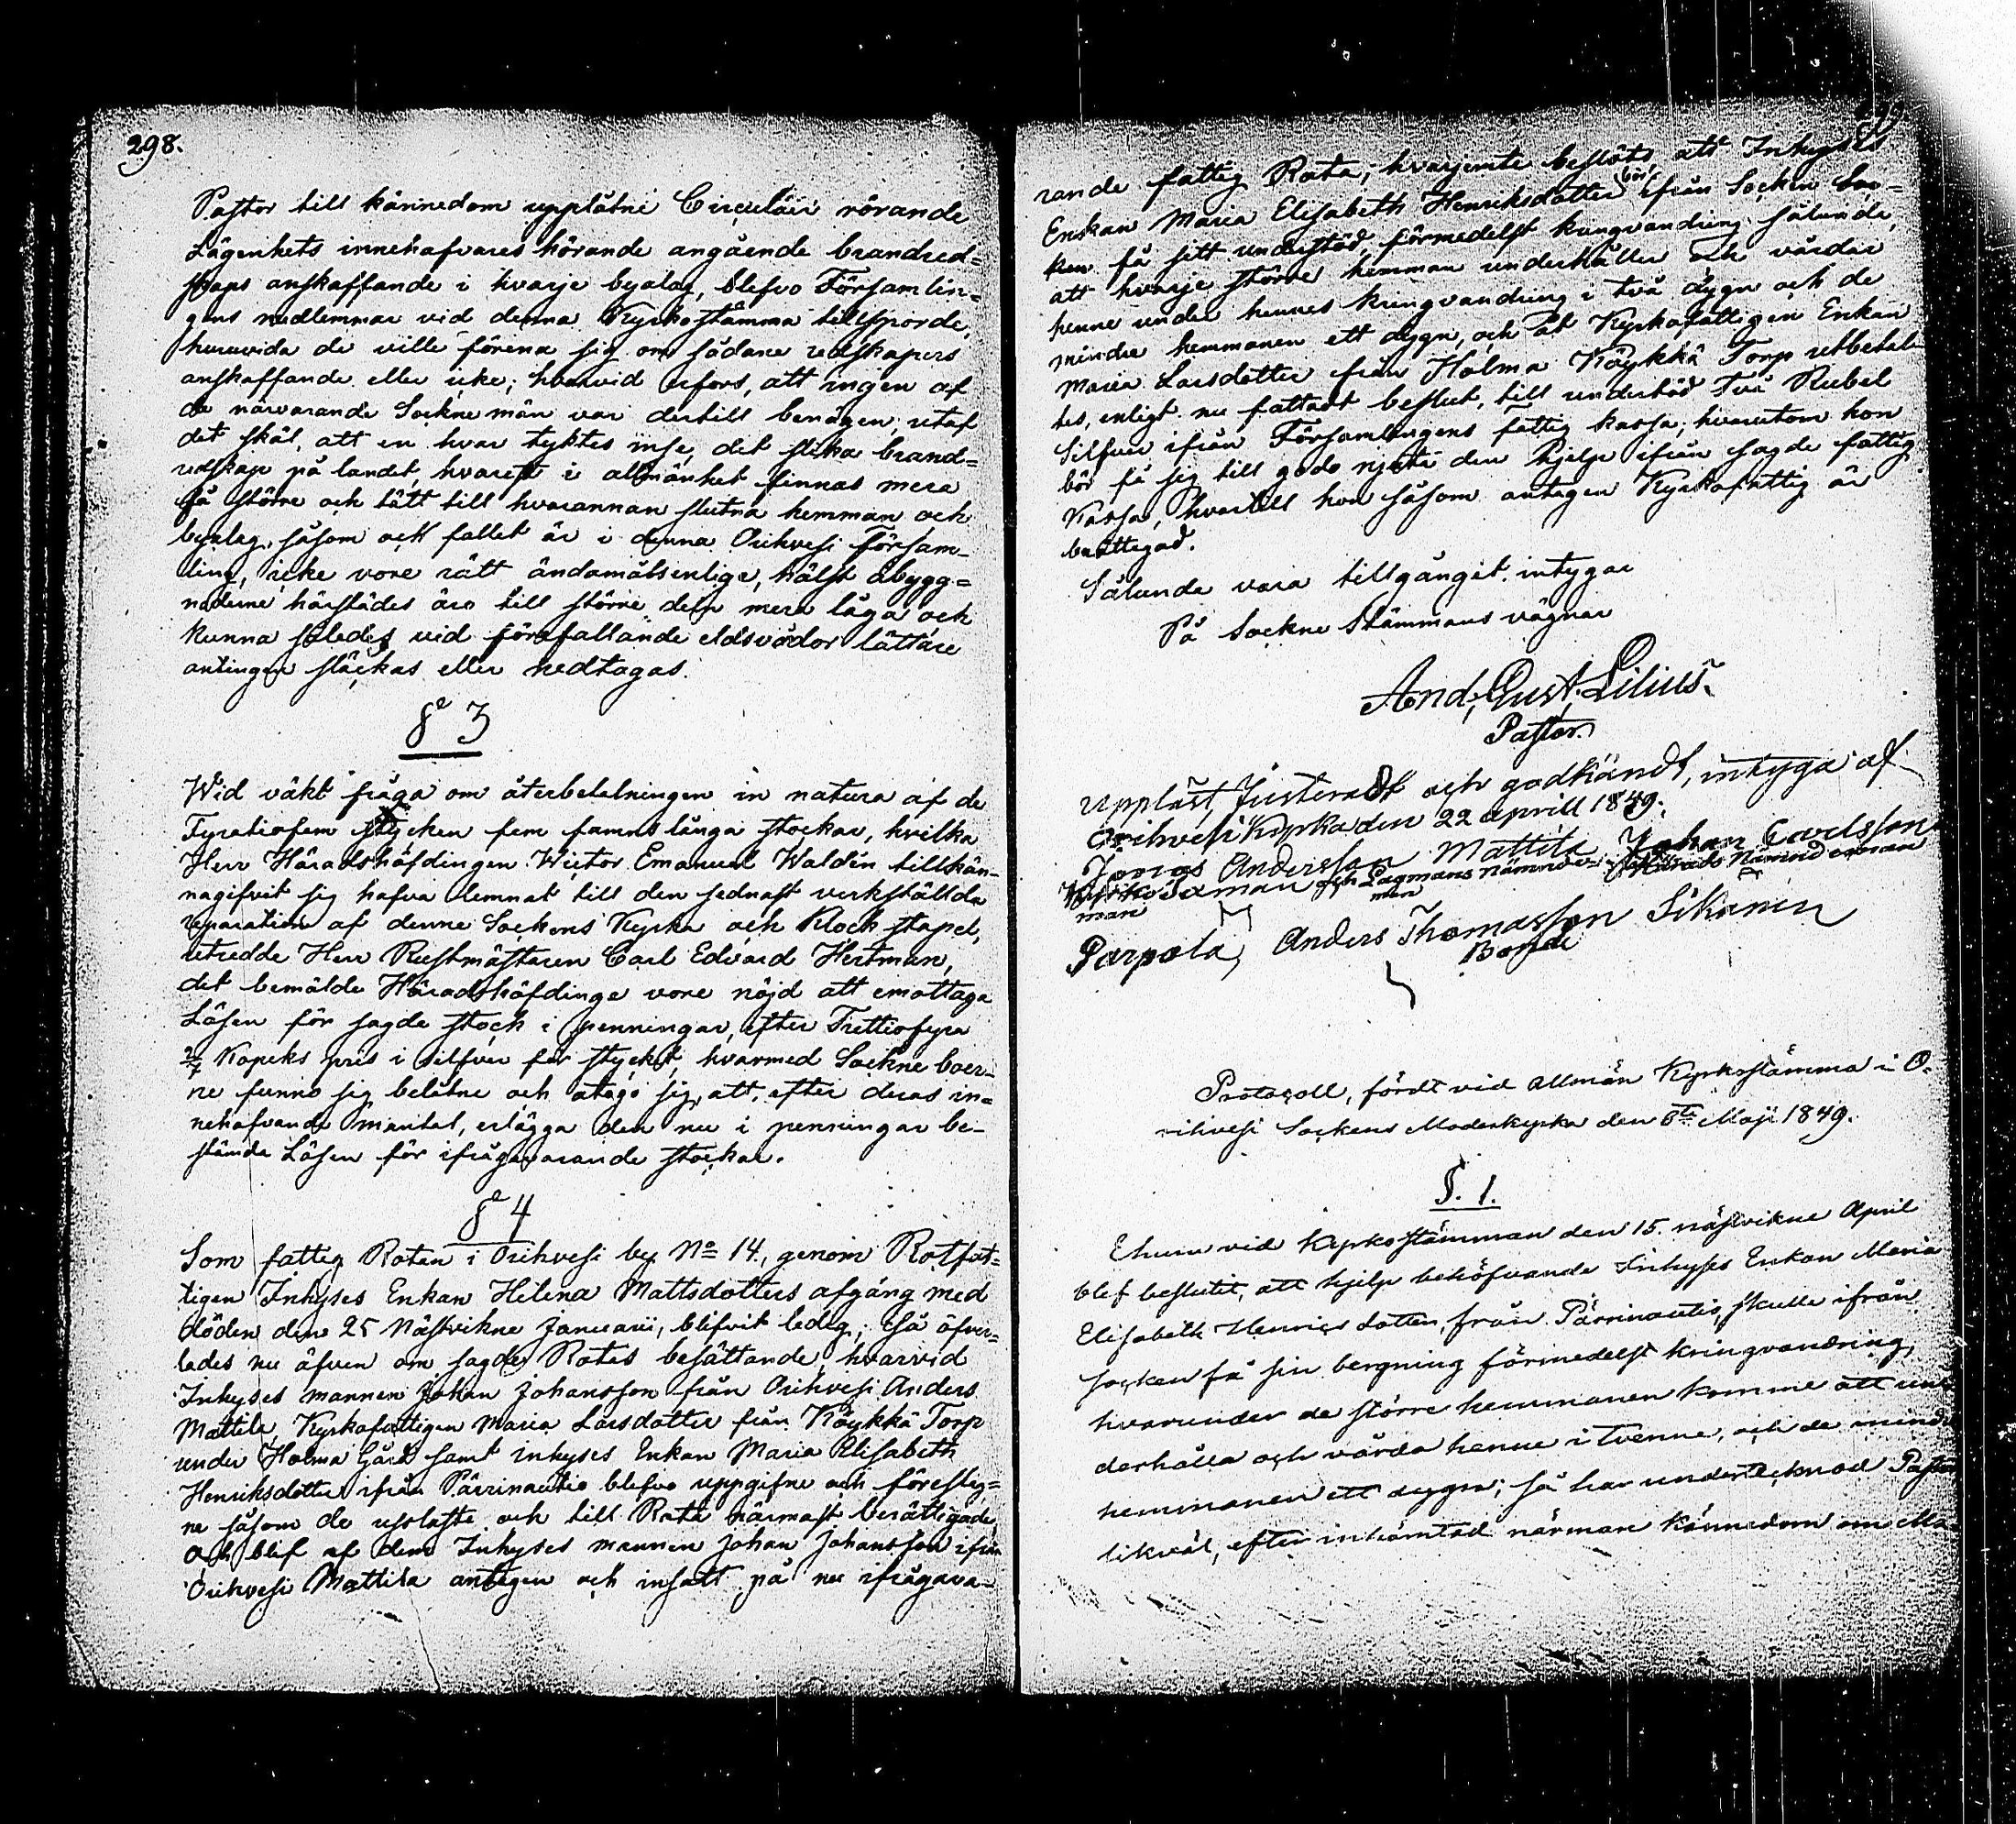 298.
Pastor till kännedom upplätne Circulär rörande
Lägenhets innehafvares hörande angående brandred=
skaps anskaffande i hvarje byalag, blefvo Församlin=
gens medlemmar vid denna Kyrkostämma tillsporde,
huruvida de ville förena sig om sådane redskapers
anskaffande eller icke; hvarvid erfors, att ingen af
de närvarande Sockne män var dertill benägen, utaf
det skäl, att en hvar tyktes inse, det slika brand=
redskap på landet, hvarest i allmänhet finnas mera
få större och tätt till hvarannan slutna hemman och
byalag, såsom ock fallet är i denna Orihvesi försam=
ling, icke vore rätt ändamålsenlige, hälst åbygg=
naderne härstädes äro till större delen mera låga och
kunna således vid förefallande eldsvådor lättare
antingen släckas eller nedtagas.
§ 3
Wid väkt fråga om återbetalningen in natura af de
Fyratiofem stycken fem famns långa stockar, hvilka
Herr Häradshöfdingen Wictor Emanuel Waldén tillkän-
nagifvit sig hafva lemnat till den sednast verkställda
reparation af denne Sockens Kyrka och Klockstapel,
utredde Herr Rustmästaren Carl Edvard Hertman,
det bemälde Häradshöfdinge vore nöjd att emottaga
Lösen för sagde stock i penningar, efter Trettiofyra
2/7 Kopeks pris i silfver för stycket, hvarmed Sockne boer-
ne funno sig belåtne och åtogo sig, att, efter deras in=
nehafvande mantal, erlägga den nu i penningar be-
stämda Lösen för ifrågavarande stockar.
§ 4
Som fattig Rotan i Orihvesi by No 14., genom Rotfat=
tigen Inhyses Enkan Helena Mattsdotters afgång med
döden den 25 Nästvikne Januarii, blifvit ledig; så öfver-
lades nu äfven om sagde Rotas besättande, hvarvid
Inhyses mannen Johan Johansson från Orihvesi Anders
Mattila, Kyrkofattigen Maria Larsdotter från Köykkä Torp
under Holma Gård samt inhyses Enkan Maria Elisabeth
Henriksdotter ifrån Pärrinautio blefvo uppgifne och föreslag=
ne såsom de uslaste och till Rota närmast berättigade,
och blef af dem Inhyses mannen Johan Johansson ifrån
Orihvesi Mattila antagen och insatt på nu ifrågava-
rande fattig Rota; hvarjemte beslöts, att Inhyses
Enkan Maria Elisabeth Henriksdotter bör ifrån Socken Soc-
ken få sitt understöd förmedelst kringvandring sålunda,
att hvarje större hemman underhåller och vårdar
henne under hennes kringvandring i två dygn och de
mindre hemmanen ett dygn, och åt Kyrkofattigen Enkan
Maria Larsdotter från Holma Köykkä Torp utbetal-
tes, enligt nu fattadt beslut, till understöd två Rubel
Silfver ifrån Församlingens fattig kassa, hvarutom hon
bör få sig till godo njuta den hjelp ifrån sagde fattig
Kassa, hvartill hon såsom antagen Kyrkofattig är
berättigad.
Sålunda vara tillgånget, intygar
På Sockne Stämmans vägnar
And, Gust, Lilius.
Pastor.
Uppläst, Justeradt och godkändt, intyga af
Orihvesi Kyrka den 22 aprill 1849.
Jonas Andersson Mattila Johan Carlsson
man och Lagmans nämnde- Härads Nämndeman
man man
Parpola, Anders Thomasson Sikanen
Bonde
Protocoll, fördt vid allmän Kyrkostämma i O-
rihvesi Sockens Moderkyrka den 6te Maji 1849.
§. 1.
Ehuru vid Kyrkostämman den 15. nästvikne April
blef beslutit, att hjelp behöfvande Inhyses Enkan Maria
Elisabeth Henricsdotter, från Pärrinautio, skulle ifrån
socken få sin bergning förmedelst kringvandring,
hvarunder de större hemmanen komme att un-
derhålla och vårda henne i tvenne, och de mindre
hemmanen ett dygn; så har undertecknad Pastor
likväl, efter inhämtad närmare kännedom om Ma-